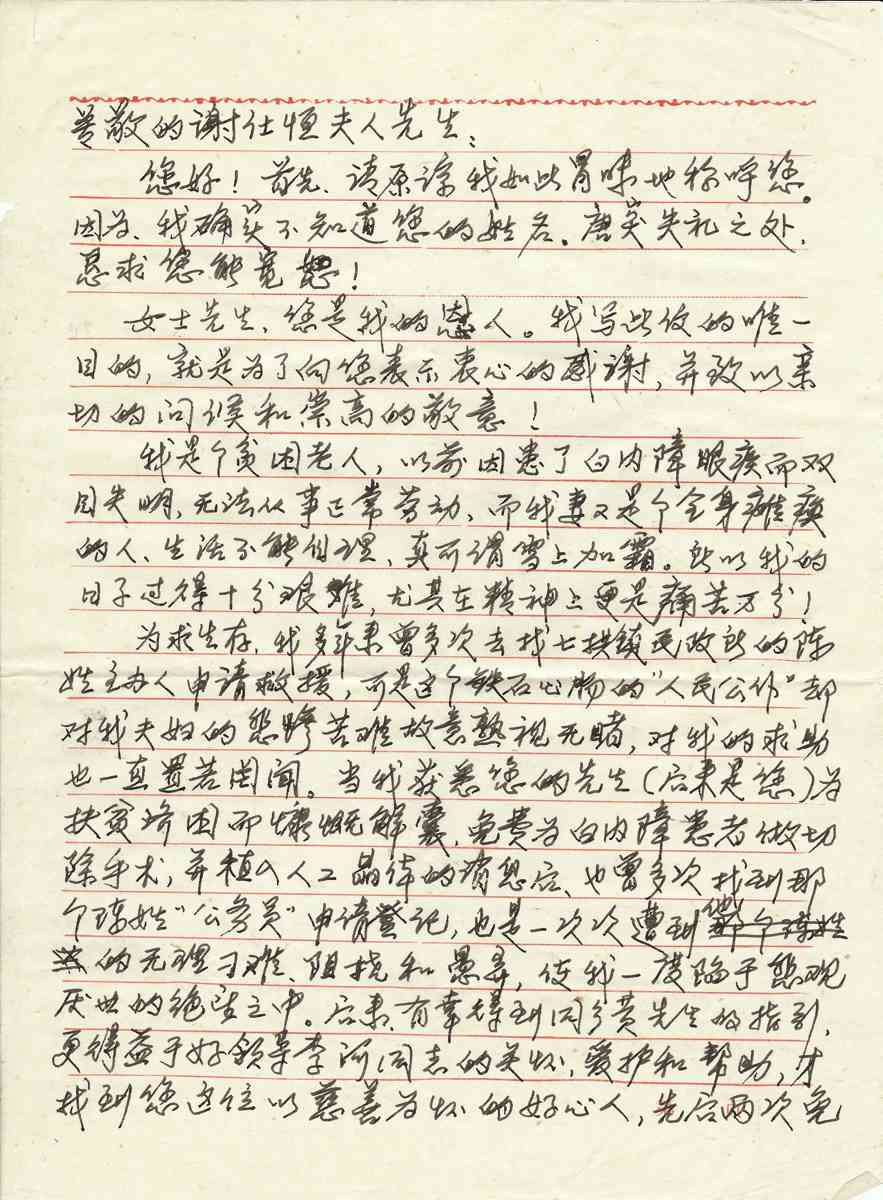 尊敬的谢仕恒夫人先生：
您好！首先、请原谅我如此冒昧地称呼您。
因为、我确实不知道您的姓名。唐突失礼之处、
恳求您能宽恕！
女士先生、您是我的恩人。我写此信的唯一
目的，就是为了向您表示衷心的感谢，并致以亲
切的问候和崇高的敬意！
我是个贫困老人，以前因患了白内障眼疾而双
目失明，无法从事正常劳动、而我妻又是个全身瘫痪
的人、生活不能自理、真可谓雪上加霜。所以我的
日子过得十分艰难，尤其在精神上更是痛苦万分！
为求生存，我多年来曾多次去找七拱镇民政所的陈
姓主办人申请救援，可是这个铁石心肠的“人民公仆”却
对我夫妇的悲惨苦难故意熟视无睹，对我的求助
也一直置若罔闻。当我获悉您的先生（后来是您）为
扶贫济困而慷慨解囊、免费为白内障患者做切
除手术，并植入人工晶体的消息后、也曾多次找到那
个陈姓“公务员”申请登记，也是一次次遭到他
的无理刁难、阻挠和愚弄，使我一度陷于悲观
厌世的绝望之中。后来、有幸得到同乡黄先生的指引，
更得益于好领导李河同志的关怀，爱护和帮助，才
找到您这位以慈善为怀的好心人，先后两次免